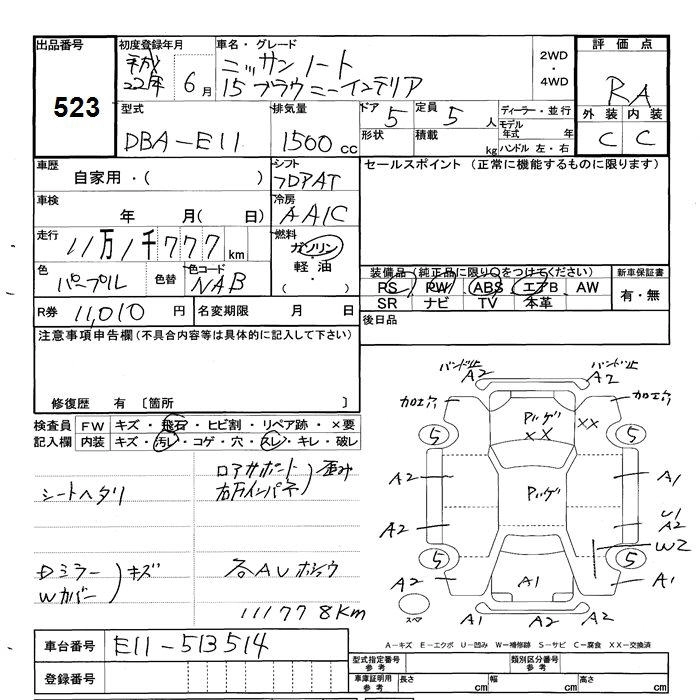 出品番号
523
初度登録年月
平成
22年 6月
車名・グレード
ニッサン ノート
15 ブラウニーインテリア
2WD
・
4WD
評価点
RA
外装 内装
C C
型式
DBA-E11
排気量
1500 cc
ドア 5
定員 5 人
形状
積載 kg
ディーラー・並行
モデル年式 年
ハンドル 左・右
車歴
自家用・( )
シフト
フロアAT
車検
年 月( 日)
冷房
AAIC
走行
11万1千777km
燃料
ガソリン
軽油
( )
色
パープル
色替
色コード
NAB
R券 11,010 円
名変期限 月 日
セールスポイント(正常に機能するものに限ります)
装備品(純正品に限り○をつけてください)
PS PW ABS エアB AW
SR ナビ TV 本革
新車保証書
有・無
後日品
注意事項申告欄(不具合内容等は具体的に記入して下さい)
修復歴 有 〔箇所
検査員 FW キズ・飛石・ヒビ割・リペア跡・×要
記入欄 内装 キズ・汚レ・コゲ・穴・スレ・キレ・破レ
シートヘタリ
ロアサポート
右フインパネ
歪み
Dミラー
Wカバー
キズ
各AUホシュウ
111778km
バンド止
A2
A2
バンド止
加工穴
加工穴
Pハゲ
XX
XX
5
5
A2
Pハゲ
A1
A2
U1
A2
W2
5
5
A2
A1
A1
スペア
A1 A2 A2
A-キズ E-エクボ U-凹み W-補修跡 S-サビ C-腐食 XX-交換済
車台番号 E11-513514
登録番号
型式指定番号
参考
類別区分番号
参考
車庫証明用
参考
長さ cm 幅 cm 高さ cm